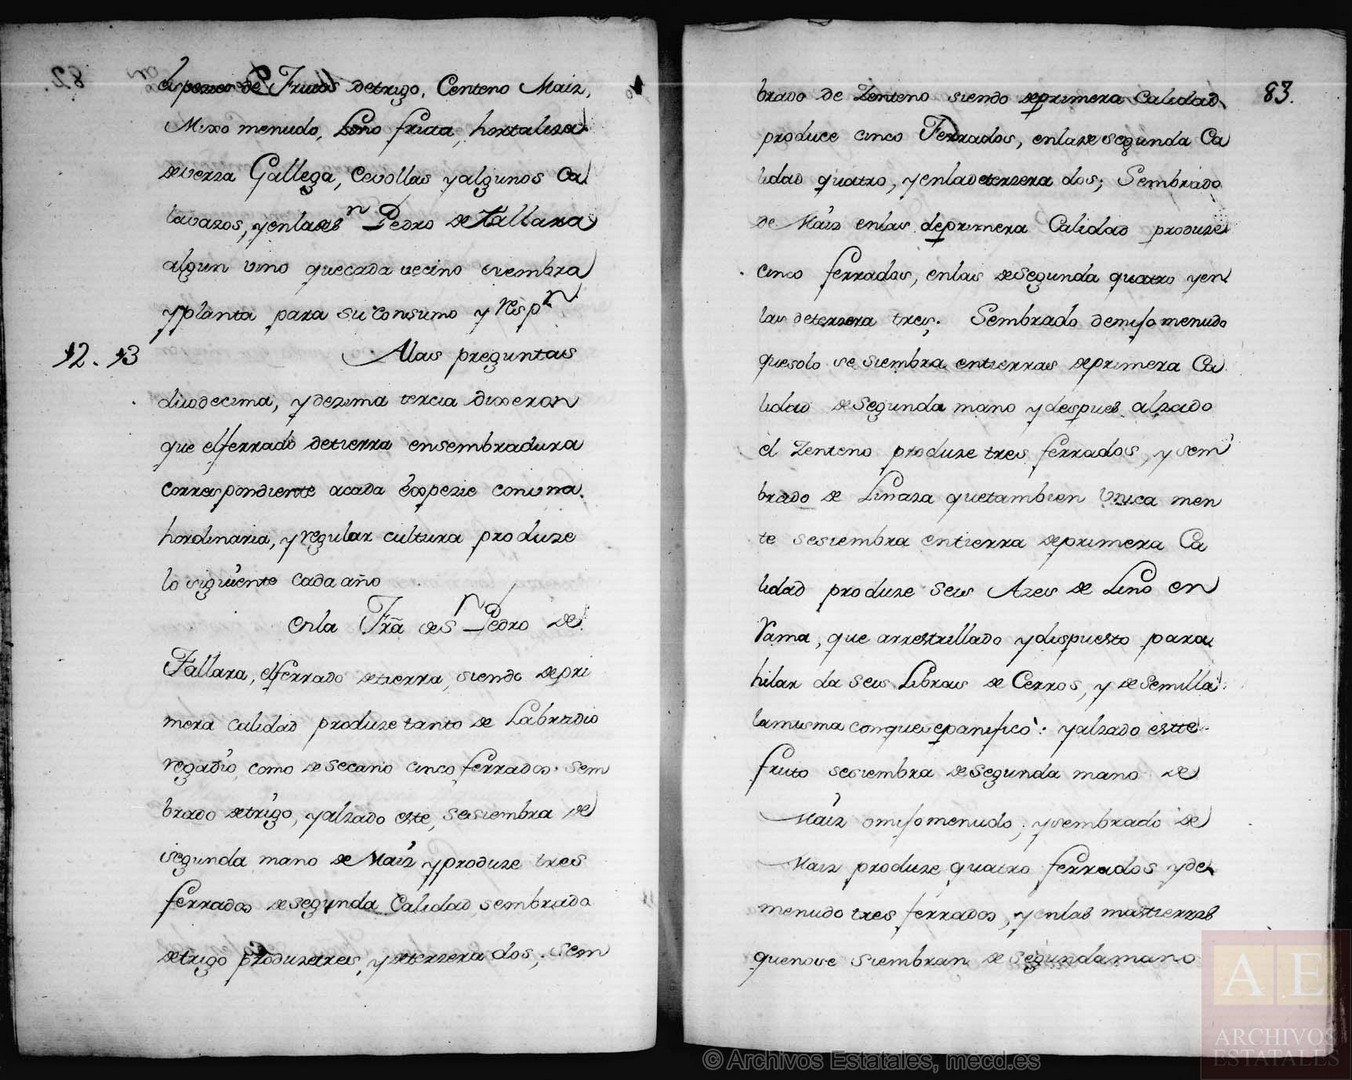 espezies de Frutos detrigo, Centeno Maiz,
Mixo menudo, Lino fruta, hortaliza
deverza Gallega, Cevollas yalgunos Ca
lavazos, yenladeSn Pedro de Tallara
algun vino quecada vecino siembra
yplanta para su consumo y Respn
12. 13 Alas preguntas
duodezima, ydezima tercia dixeron
que elferrado detierra ensembradura
correspondiente acada espezie conuna
hordinaria, yregular cultura produze
lo siguiente cada año
enla Fra deSn Pedro de
Tallara, elferrado detierra, siendo depri
mera calidad produze tanto de Labradio
regadio como desecano cinco ferrados sem
brado detrigo, yalzado este, sesiembra de
segunda mano de Maiz yproduze tres
ferrados desegunda Calidad sembrado
detrigo produzetres, ydeterzera dos, sem
83.
brado de Zenteno siendo deprimera Calidad
produce cinco Ferrados, enladesegunda Ca
lidad quatro, yenladeterzera dos; Sembrado
de Maiz enlas deprimera Calidad produze
cinco ferrados, enlas desegunda quatro yen
las deterzera tres. Sembrado demijomenudo
quesolo se siembra entierras deprimera Ca
lidad desegunda mano ydespues alzado
el Zenteno produze tres ferrados, ysem
brado de Linaza quetambien Unica men
te sesiembra entierra deprimera Ca
lidad produze seis Azes de Lino en
Rama, que arrestrillado ydispuesto para
hilar da seis Libras de Cerros, y deSemilla
lamisma conquesepanificò: yalzado este
fruto sesiembra desegunda mano de
Maiz omijomenudo, ysembrado de
Maiz produze quatro ferrados yde
menudo tres ferrados, yenlas mastierras
quenose siembran de segundamano
AE
ARCHIVOS
ESTATALES
© Archivos Estatales, mecd.es